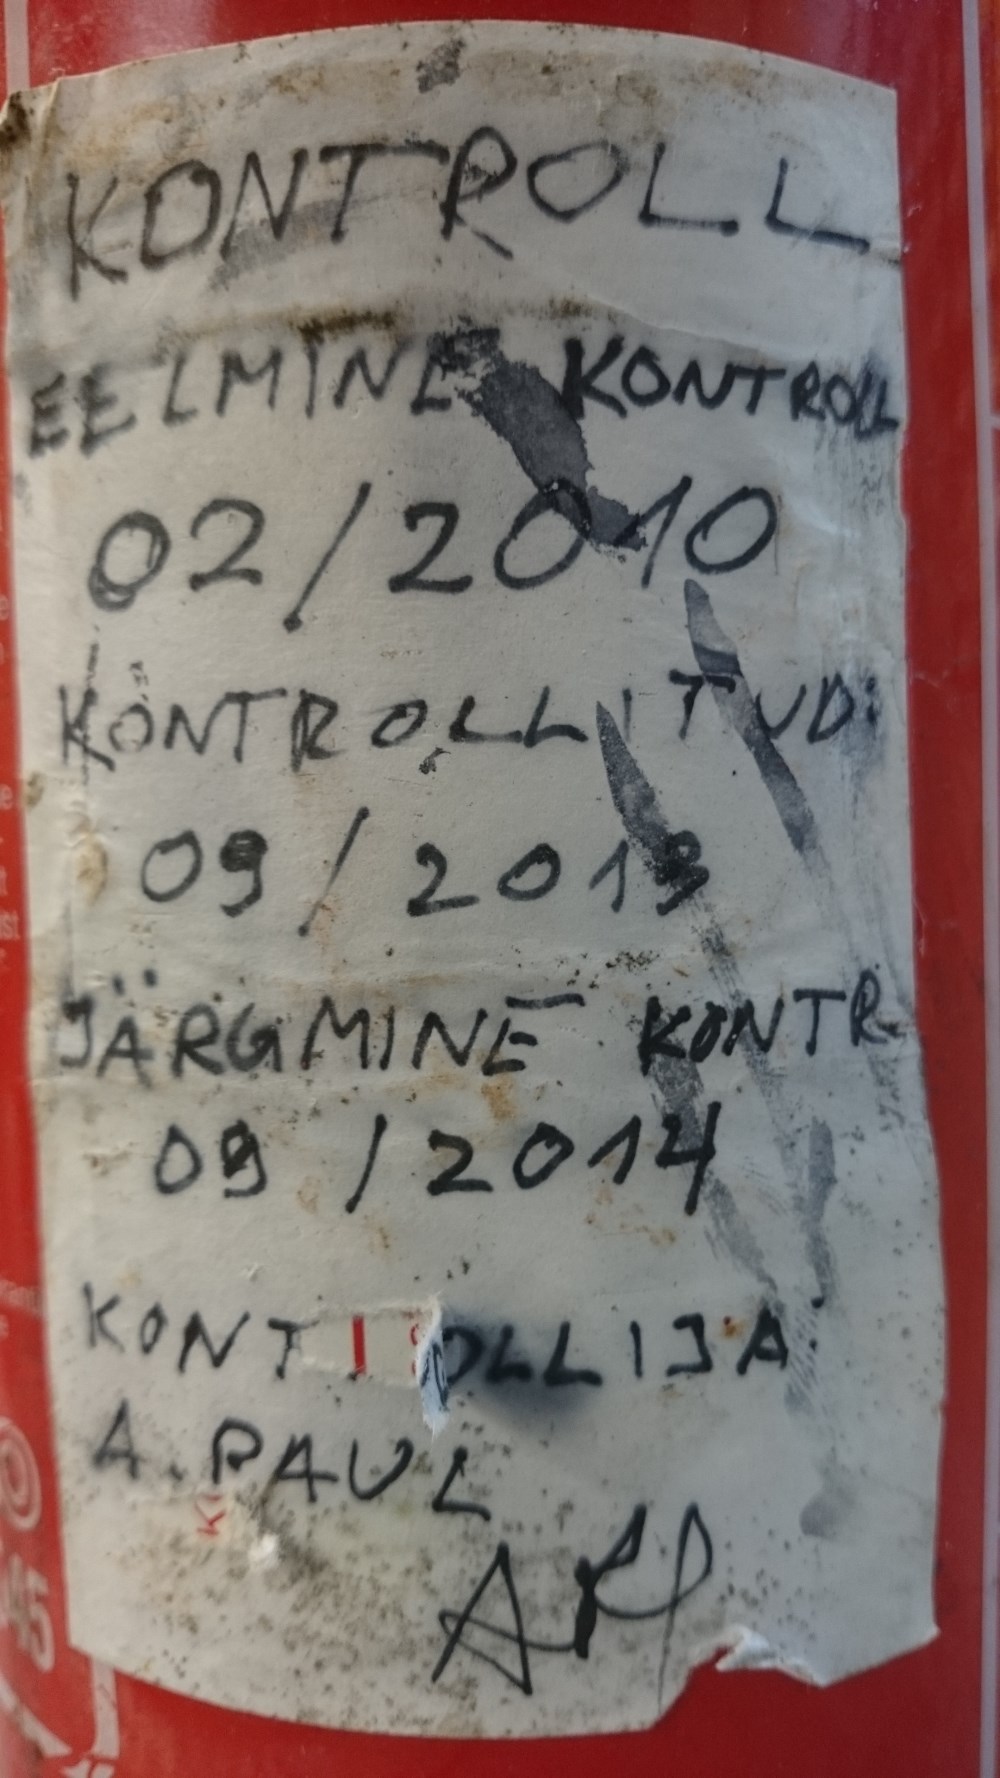 KONTROLL
EELMINE KONTROLL
02/2010
KONTROLLITUD:
09/2013
JÄRGMINE KONTR.
09/2014
A. PAUL
45